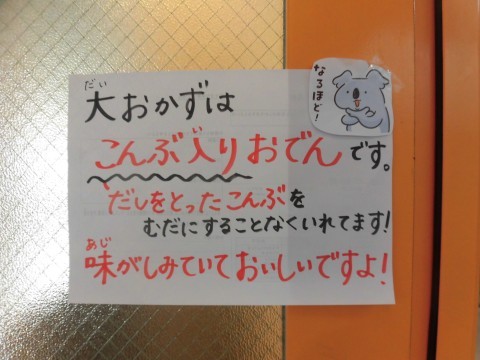 だい
大おかずは
なるほど!
い
こんぶ入りおでんです。
だしをとったこんぶを
むだにすることなくいれてます!
あじ
味がしみていておいしいですよ!